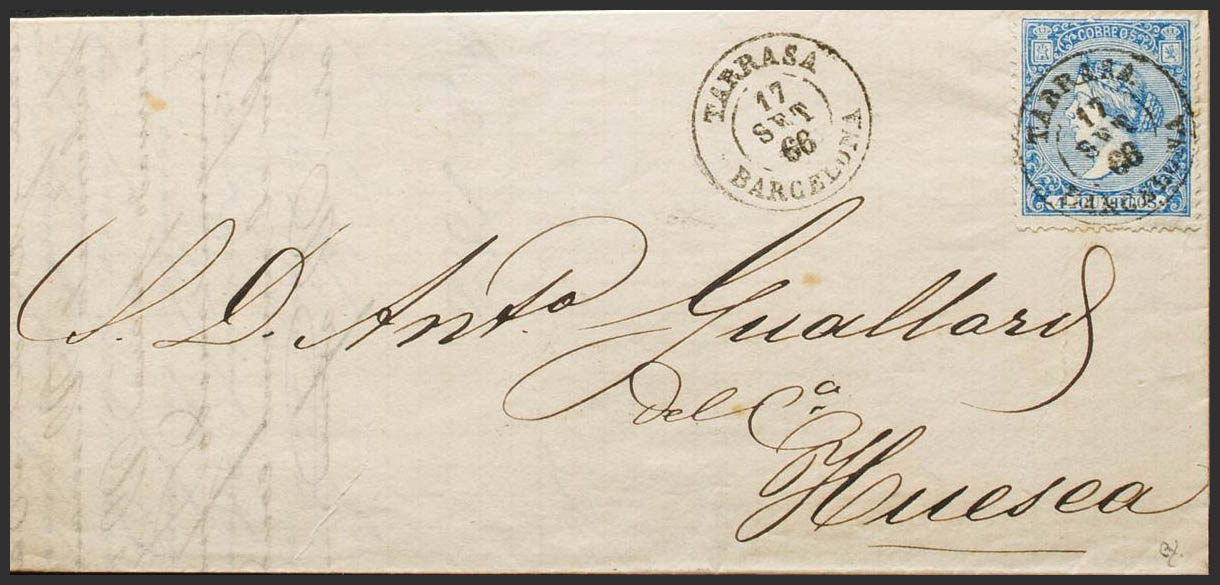 TARRASA
17
SET
66
BARCELONA
CORREOS
TARRASA
17
SET
66
BARCELONA
CUARTOS
S. D. Anto. Guallard
del Ca.
Huesca